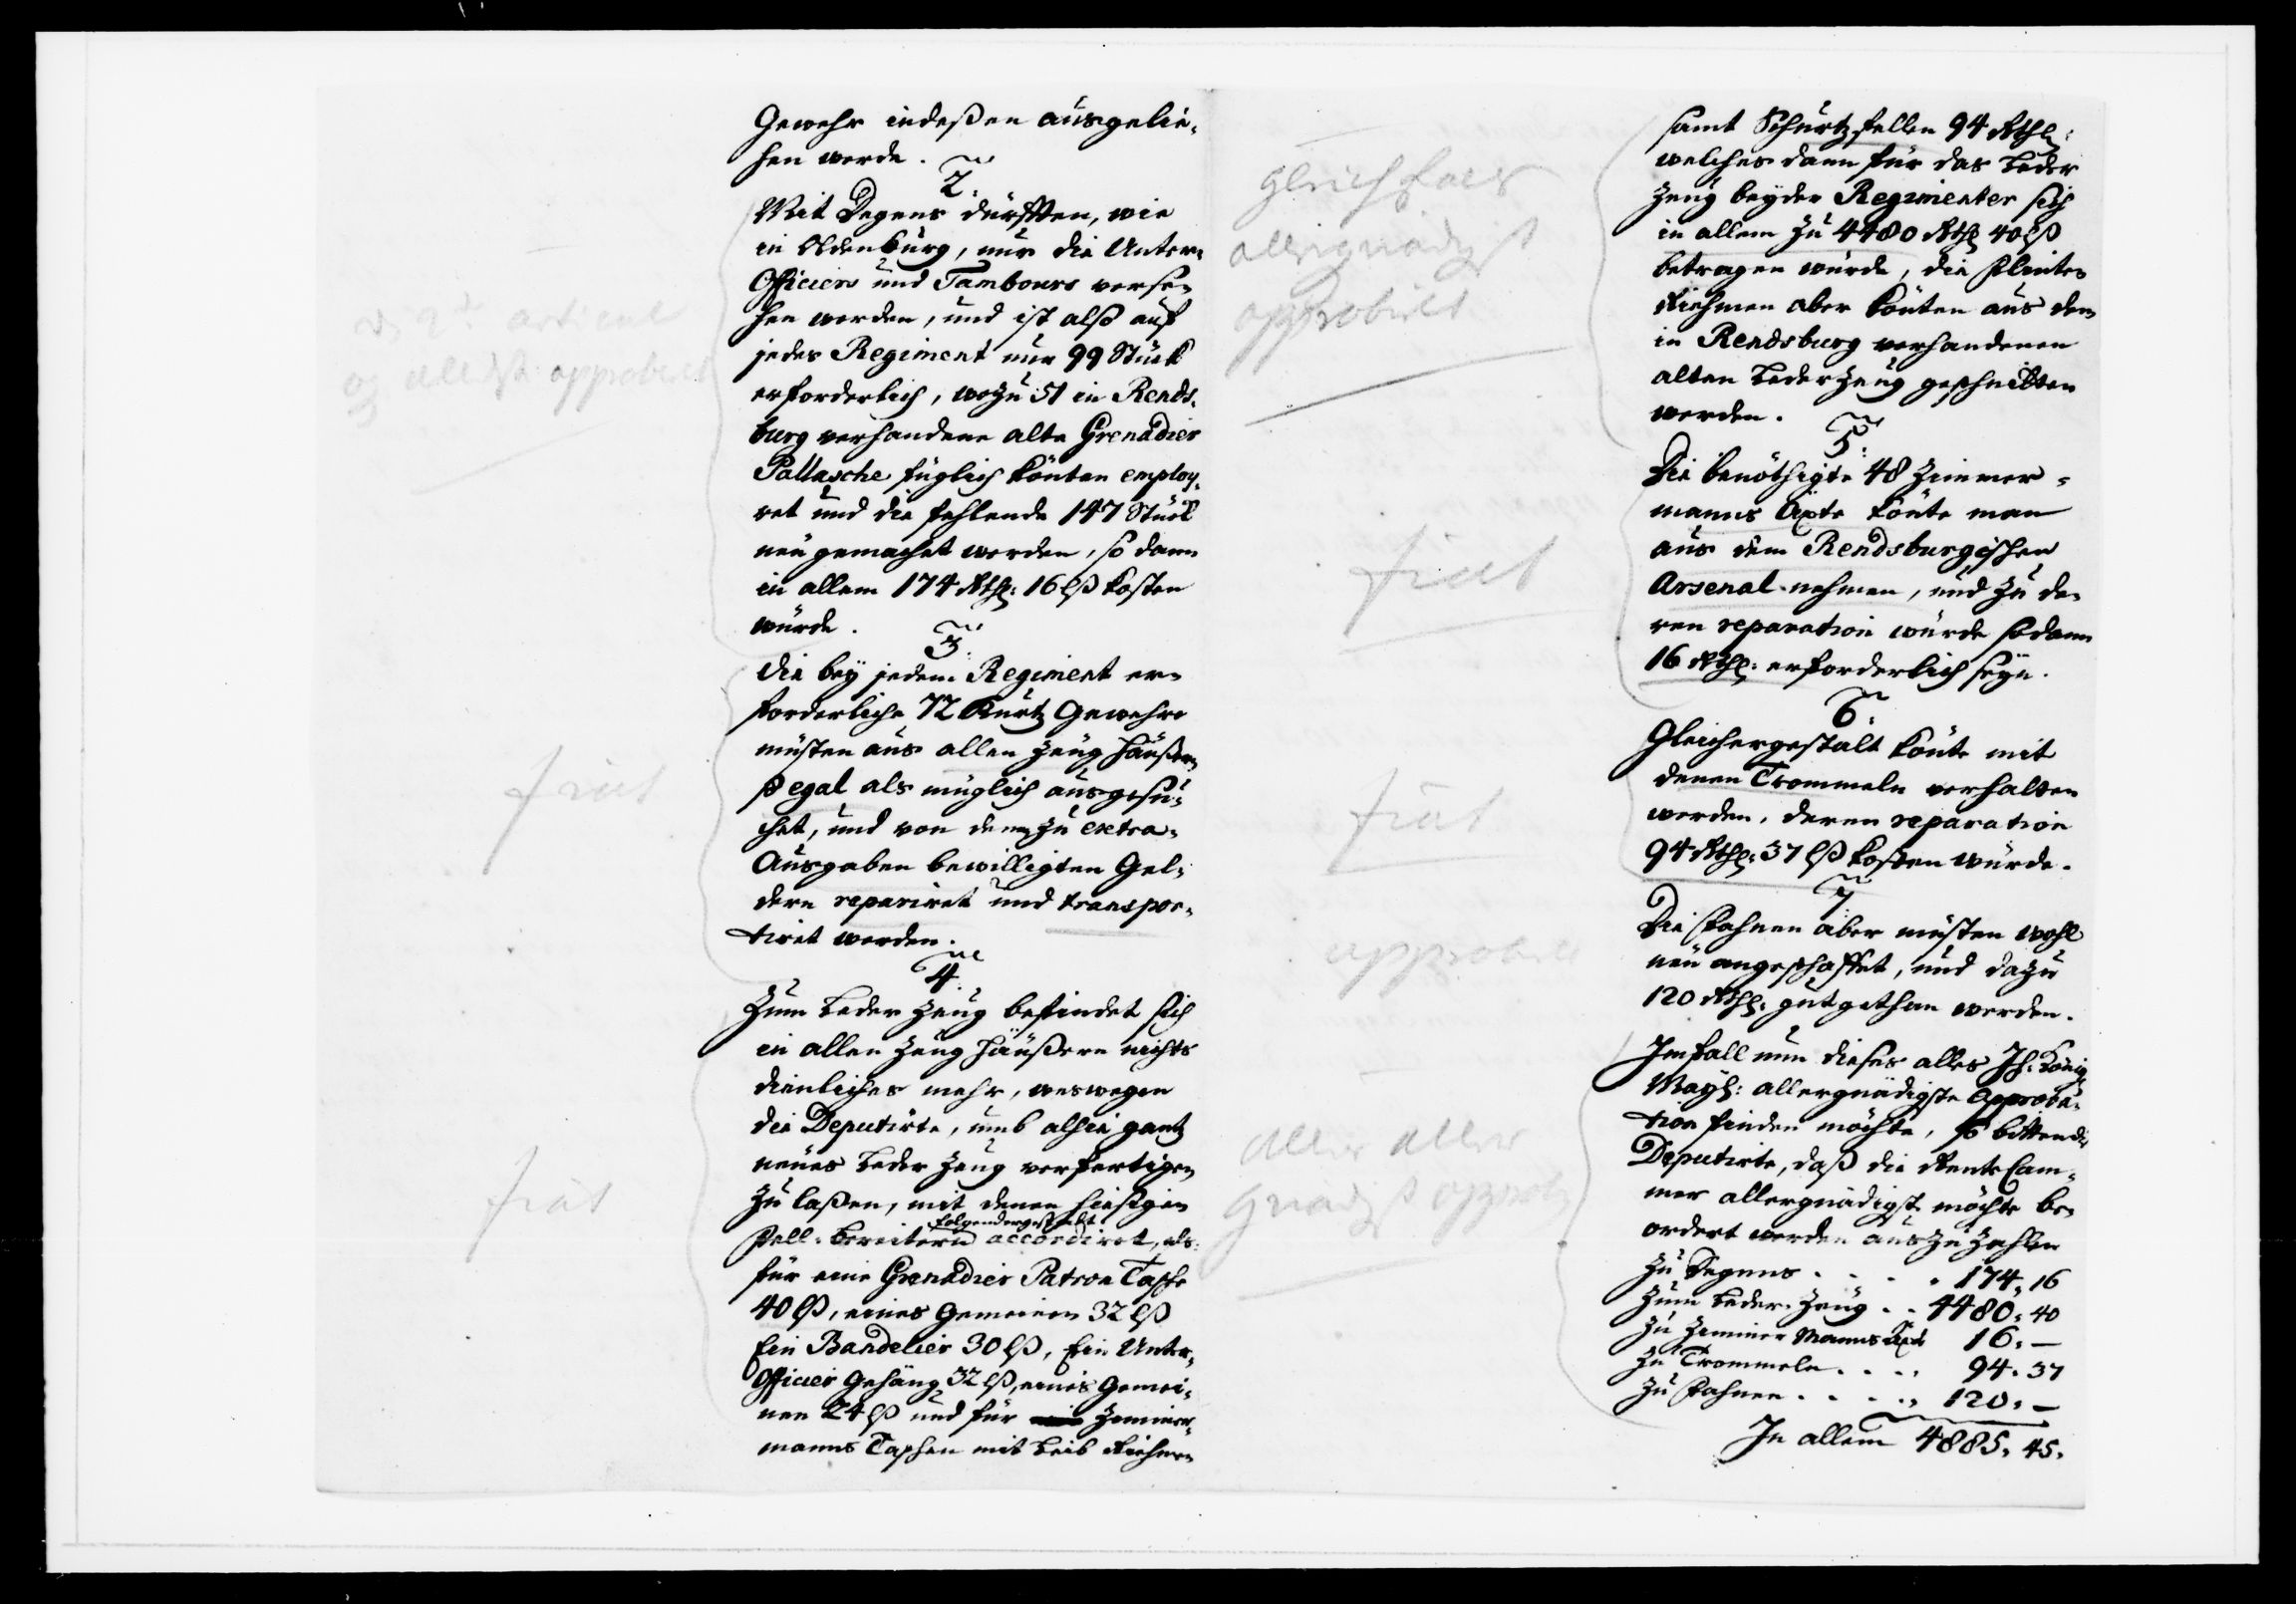 Gewehr indeßen ausgelie-
hen werde.
2.
Mit Degens dürfften, wie
in Oldenburg, nur die Unter-
Officiers und Tambours verse-
hen werden, und ist also auf
jedes Regiment nur 99 Stück
erforderlich, wozu 51 in Rends-
burg verhandene alte Grenadier
Pallasche füglich könten employ-
ret und die fehlende 147 Stück
neu gemachet werden, so dann
in allem 174 Rthl: 16 lß kosten
würde.
3.
Die bey jedem Regiment er-
forderliche 72 Kurtz Gewehre
müsten aus allen Zeug Häußern
so egal als müglich ausgesu-
chet, und von denen zu extra-
Ausgaben bewilligten Gel-
dern repariret und transpor-
tiret werden.
4.
Zum Leder Zeug befindet sich
in allen Zeug Häußern nichts
dienliches mehr, weswegen
die Deputirte, umb alhie gantz
neues Leder Zeug verfertigen
zu laßen, mit denen hiesigen
folgendergestalt
Fell-Bereitern accordiret, als:
für eine Grenadier Patron Tasche
40 lß, eines Gemeinen 32 lß
Ein Bandelier 30 lß, Ein Unter-
Officier Gehäng 32 lß, eines Gemei-
nen 24 lß und für Zimmer-
manns Taschen mit Leib Riehmen
articul
allergst approbirt
fiat
fiat
samt Schurtzfellen 94 Rthl:
welches dann für das Leder
Zeug beyder Regimenter sich
in allem zu 4480 Rthl 40 lß
betragen würde, die Flinten
Riehmen aber könten aus dem
in Rendsburg verhandenen
alten Leder Zeug geschnitten
werden.
5.
Die benöthigte 48 Zimmer-
manns Äxte könte man
aus dem Rendsburgischen
Arsenal nehmen, und zu de-
ren reparation würde sodann
16 Rthl: erforderlich seyn.
6.
Gleichergestalt könte mit
denen Trommeln verhalten
werden, deren reparation
94 Rthl: 37 lß kosten würde.
7.
Die Fahnen aber müsten wohl
neu angeschaffet, und dazu
120 Rthl: gutgethan werden.
Imfall nun dieses alles Ih: König:
Mayt: allergnädigste Approba-
tion finden möchte, so bitten die
Deputirte, daß die Rente Cam-
mer allergnädigst möchte be-
ordert werden auszuzahlen
Zu Degens . . . . 174. 16
Zum Leder-Zeug . . 4480. 40
Zu Zimmer Manns Äxt 16. —
Zu Trommeln . . . . 94. 37
Zu Fahnen . . . . . 120. —
In allem 4885. 45.
Gleichfals
allergnädigst
approbirt
fiat
fiat
approbirt
aller
gnädgst approb